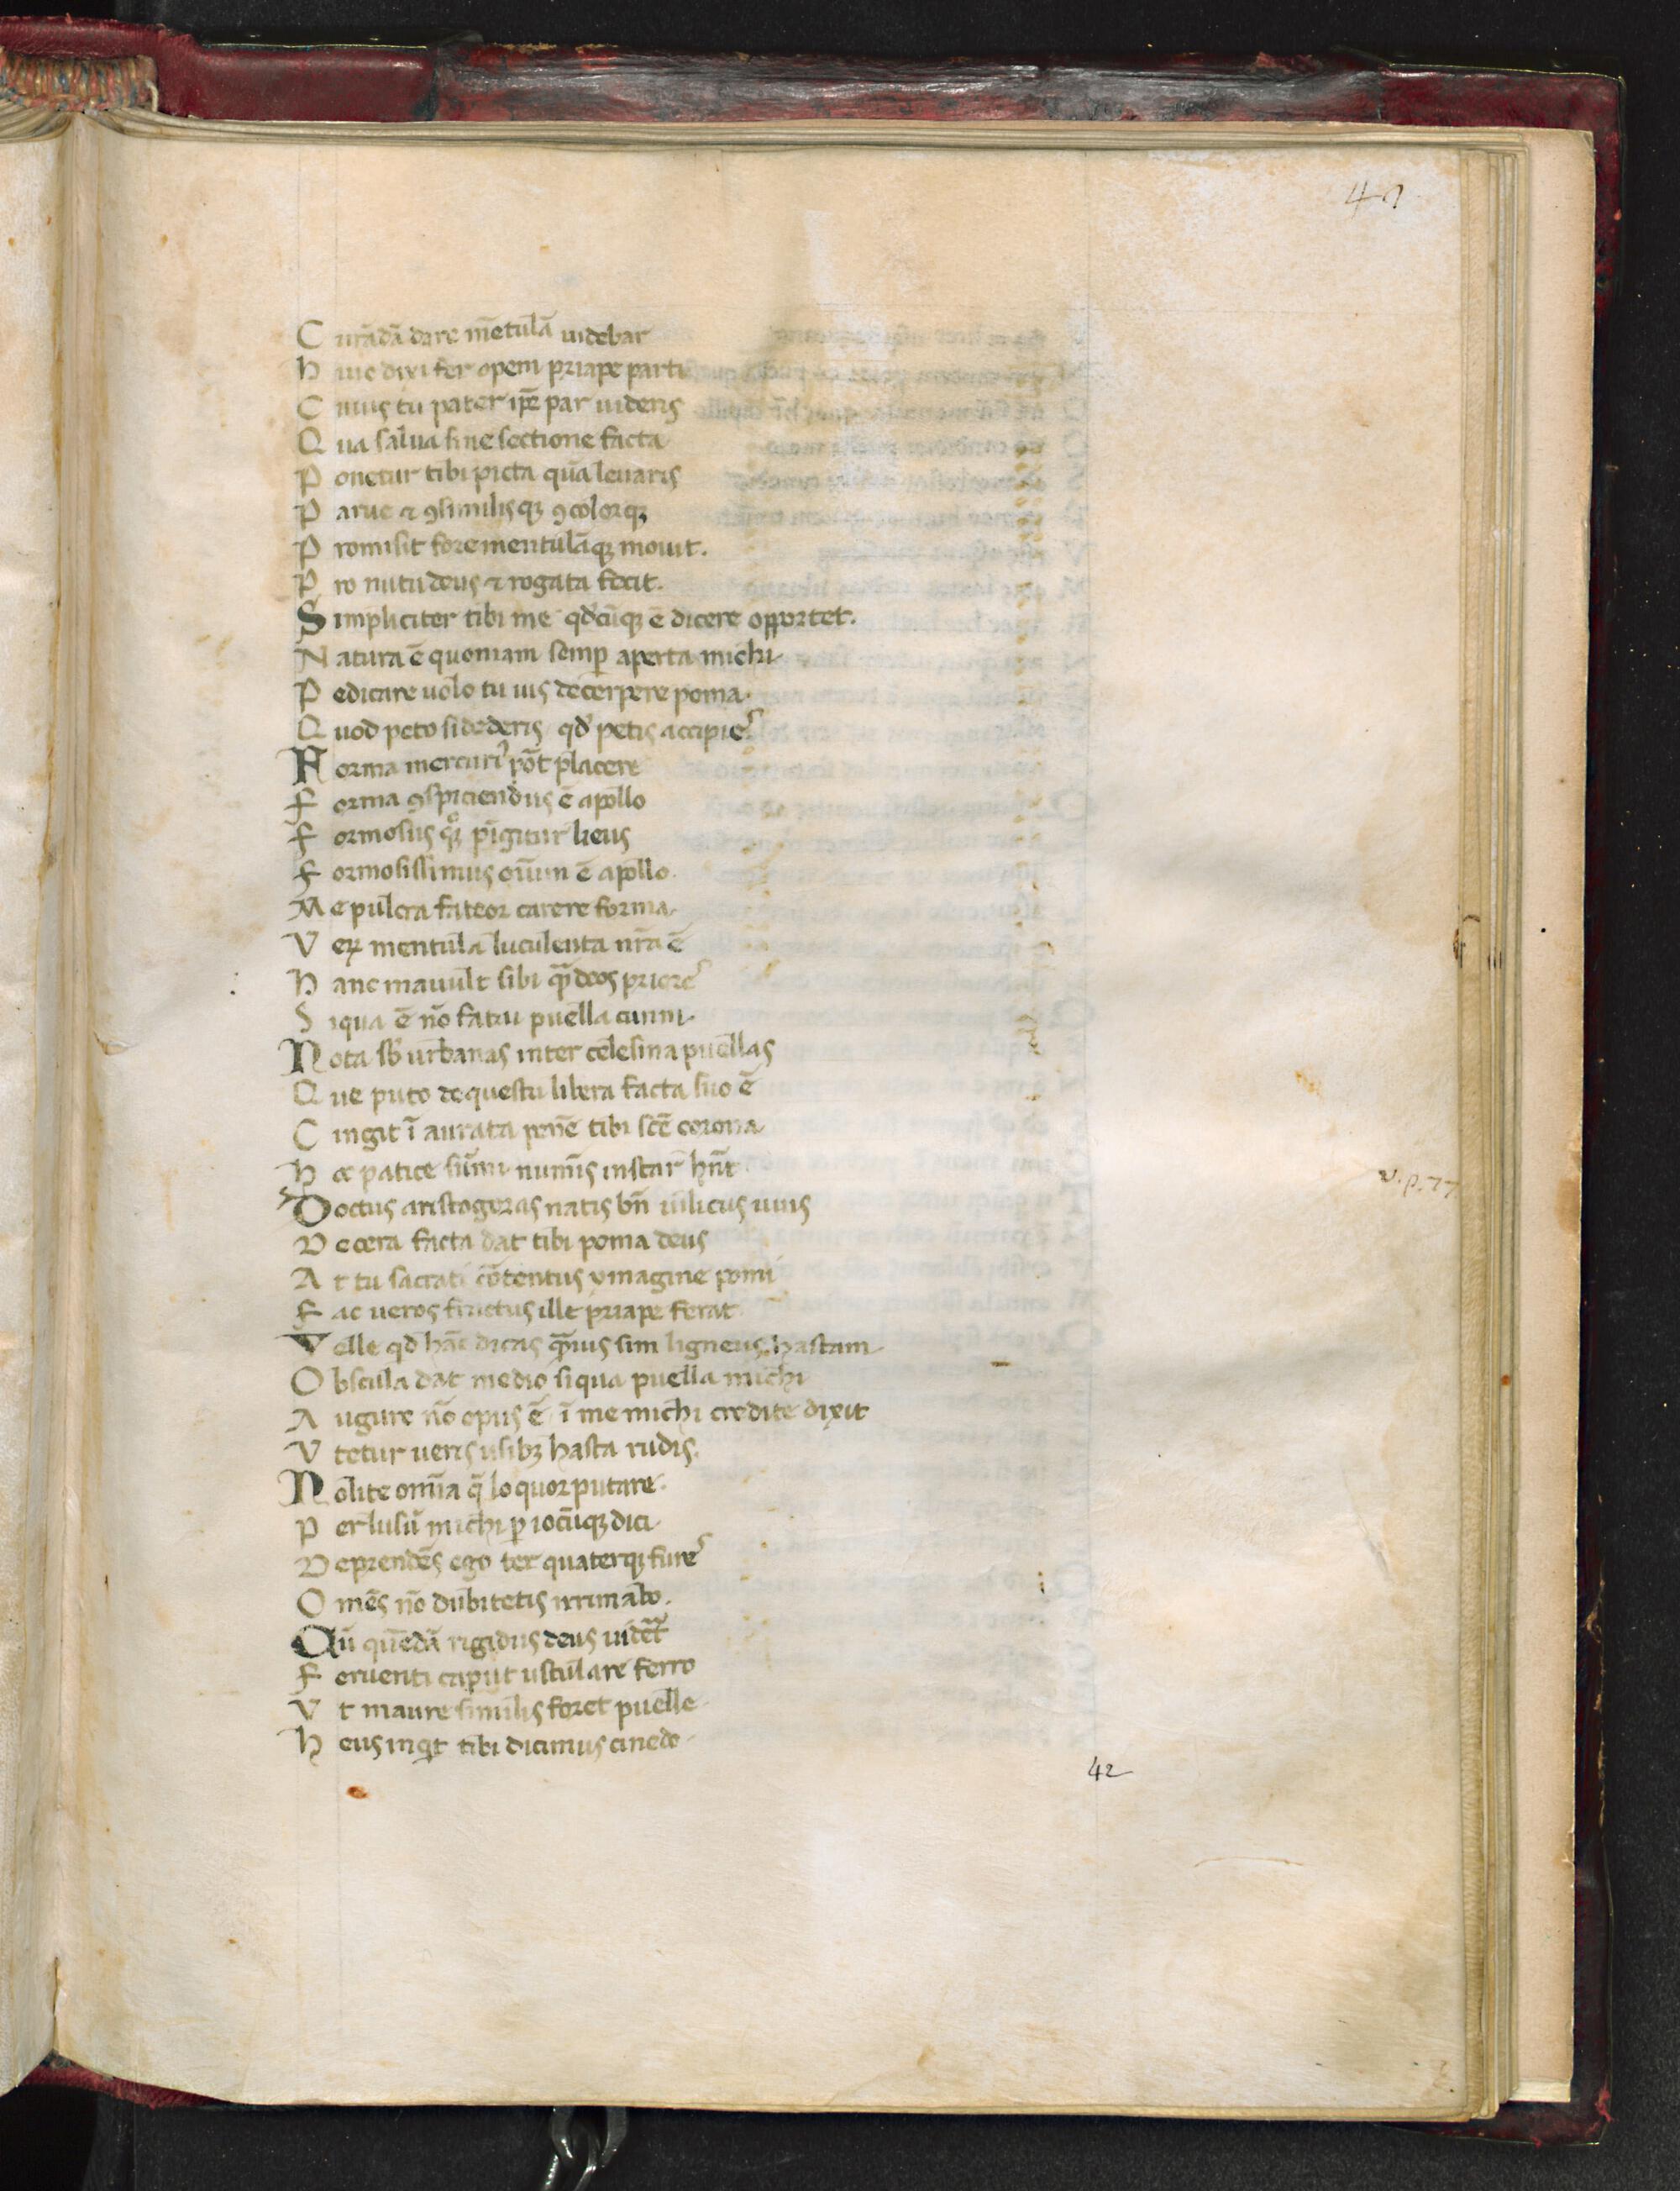 47
C urādā dare mētulā uidebar
h uic dixi fer opem priape parti
C uius tu pater ip̄e par uideris
Q ua salua sine sectione facta
P onetur tibi picta quā leuaris
P arue ⁊ ꝯsimilisqꝫ ꝯcolorqꝫ
P romisit fore mentulāqꝫ mouit.
P ro nutu deus ⁊ rogata fecit.
S impliciter tibi me qd̄cūqꝫ ē dicere opportet.
N atura ē quoniam semꝑ aperta michi
P edicare uolo tu uis decerpere poma.
Q uod peto si dederis qd̄ petis accipies
F orma mercuri pōt placere
F orma ꝯspiciendus ē apollo
F ormosus qqꝫ pīgitur lieus
F ormosissimus oīum ē apollo.
M e pulcra fateor carere forma.
V eꝝ mentula luculenta nr̄a ē
h anc mauult sibi qͣ̄ deos priores
S iqua ē nō fatui puella cunni.
N ota sb̄ urbanas inter celesina puellas
Q ue puto de questu libera facta suo ē
C ingit ī aurata penē tibi scē corona
h oc patice sūmi numīs instar hn̄t
D octus aristogoras natis bn̄ uilicus uuis
D e cera facta dat tibi poma deus
A t tu sacrati cōtentus ymagine pomi
F ac ueros fructus ille priape ferat
V elle qd̄ hāc dicas qͣ̄uis sim ligneus hastam
O bscula dat medio siqua puella michi
A ugure nō opus ē ī me michi credite dixit
V tetur ueris usibꝫ hasta rudis.
N olite omīa q̄ loquor putare.
P er lusū michi ꝑ iocūqꝫ dici.
D eprendēs ego ter quaterqꝫ fures
O mēs nō dubitetis irrimabo.
Q ū quēdā rigidus deus uidēt
F eruenti caput ustulare ferro
V t maure similis foret puelle
h eus inqͥt tibi dicimus cinedo
42